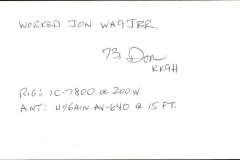 WORKED JON WA9JER.
73, Don
KK9H
RIG: IC-7800 @ 200W
ANT: HYGAIN AV-640 @ 15 FT.